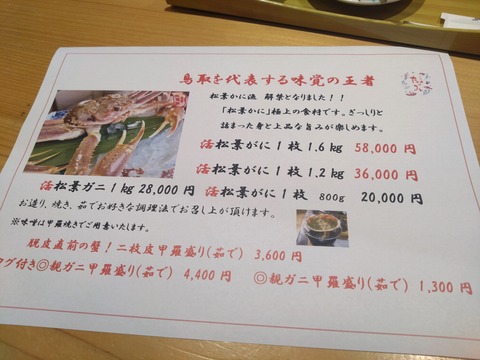 鳥取を代表する味覚の王者
松葉かに漁 解禁となりました！！
「松葉かに」極上の食材です。ぎっしりと
詰まった身と上品な旨みが楽しめます。
活松葉がに１枚 1.6 kg 58,000 円
活松葉がに１枚 1.2 kg 36,000 円
活松葉ガニ 1 kg 28,000 円
活松葉がに１枚 800g 20,000 円
お造り、焼き、茹でお好きな調理法でお召し上が頂けます。
※味噌は甲羅焼きでご用意いたします。
脱皮直前の蟹！二枚皮甲羅盛り(茹で) 3,600 円
タグ付き◎親ガニ甲羅盛り(茹で) 4,400 円
◎親ガニ甲羅盛り(茹で) 1,300 円